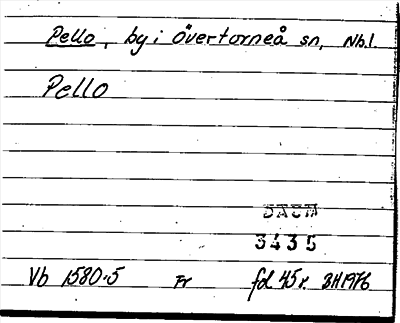 Pello, by i Övertorneå sn, Nb.l.
Pello
DAUM
3435
Vb 1580:5 Fr fd 45 r. BH 1976